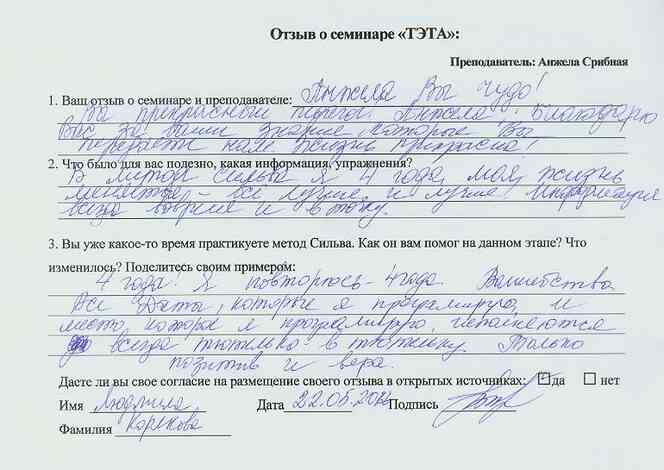 Отзыв о семинаре «ТЭТА»:
Преподаватель: Анжела Срибная
1. Ваш отзыв о семинаре и преподавателе: Анжела Вы Чудо!
Вы прекрасный педагог Анжела! Благодарю
Вас за ваши знание, которые Вы
передаёте нам Жизнь прекрасна!
2. Что было для вас полезно, какая информация, упражнения?
В методе Сильва я 4 года, моя жизнь
меняется - всё лучше и лучше! Информация
всегда вовремя и в точку.
3. Вы уже какое-то время практикуете метод Сильва. Как он вам помог на данном этапе? Что
изменилось? Поделитесь своим примером:
4 года! Я повторюсь - 4 года. Волшебства
Все Даты, которые я программирую, и
место, которое я программирую, исполняются
всегда тютелька в тютельку. Только
позитив и вера.
Даете ли вы свое согласие на размещение своего отзыва в открытых источниках: да нет
Имя Людмила Дата 22.05. Подпись
Фамилия